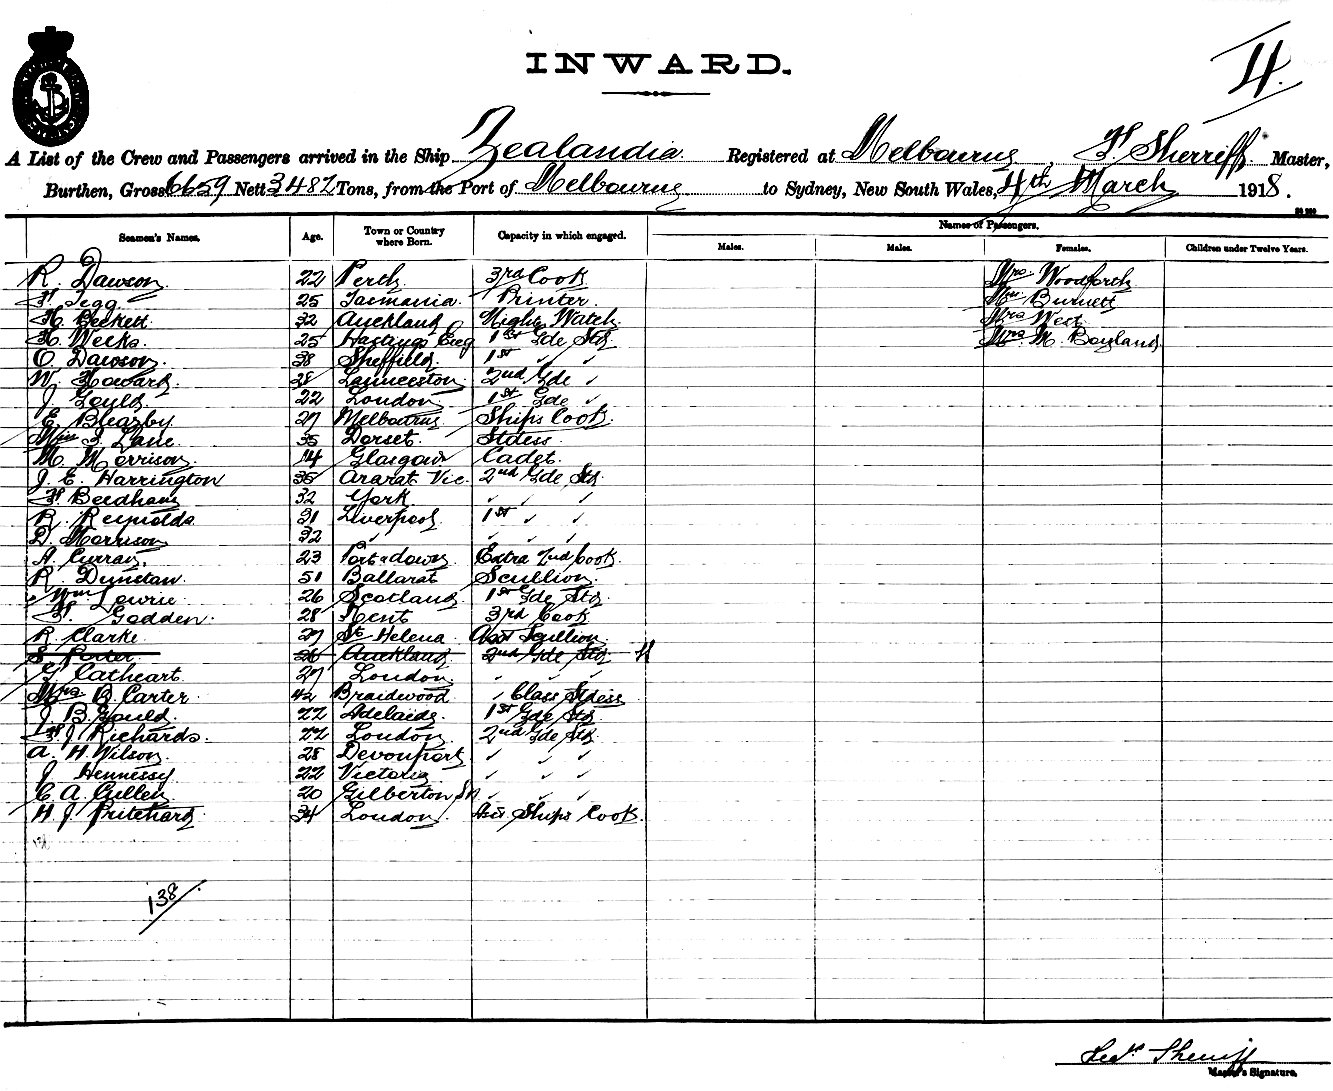 INWARD.
4.
A List of the Crew and Passengers arrived in the Ship Zealandia. Registered at Melbourne, F. Sherriff. Master,
Burthen, Gross 6659 Nett 3482 Tons, from the Port of Melbourne to Sydney, New South Wales, 4th March 1918.
Names of Passengers.
Seamen's Names. Age. Town or Country where Born. Capacity in which engaged. Males. Males. Females. Children under Twelve Years.
R. Dawson 22 Perth 3rd Cook Mrs Woodforth
F. Tegg 25 Tasmania. Printer. Burnett
H. Beckett. 32 Auckland Night Watch. Mrs West
H. Weeks. 25 Hastings Eng 1st Gde Std Mrs. M. Boyland
O. Dawson. 38 Sheffield 1st ✓ ✓
W. Howard. 28 Launceston 2nd Gde ✓
J. Gould. 22 London 1st Gde ✓
E. Bleazby 27 Melbourne Ships Cook.
Lane. 35 Dorset. Stdess.
M. Morrison. 14 Glasgow Cadet.
J. E. Harrington 35 Ararat Vic. 2nd Gde Std.
F. Beedham 32 York ✓ ✓ ✓
R. Reynolds 31 Liverpool 1st ✓ ✓
D. Morrison 32 ✓ ✓ ✓ ✓
A. Curran. 23 Portadown Extra 2nd Cook.
R. Dunstan. 51 Ballarat Scullion.
Wm Lowrie 26 Scotland 1st Gde Std.
F. Godden. 28 Kent 3rd Cook
R. Clarke. 27 St Helena Asst Scullion.
S. Porter 26 Auckland 2nd Gde Std
G. Cathcart. 27 London. ✓ ✓ ✓
Mrs B. Carter 42 Braidwood ✓ Class Stdess
J. B. Gould. 22 Adelaide 1st Gde Std
F. J. Richards. 22 London. 2nd Gde Std.
A. H. Wilson. 28 Devonport ✓ ✓ ✓
J. Hennessy 22 Victoria ✓ ✓ ✓
C. A. Gillen 20 Gilberton SA ✓ ✓ ✓
H. J. Pritchard 34 London. Asst Ships Cook.
138
Sherriff
Master's Signature.